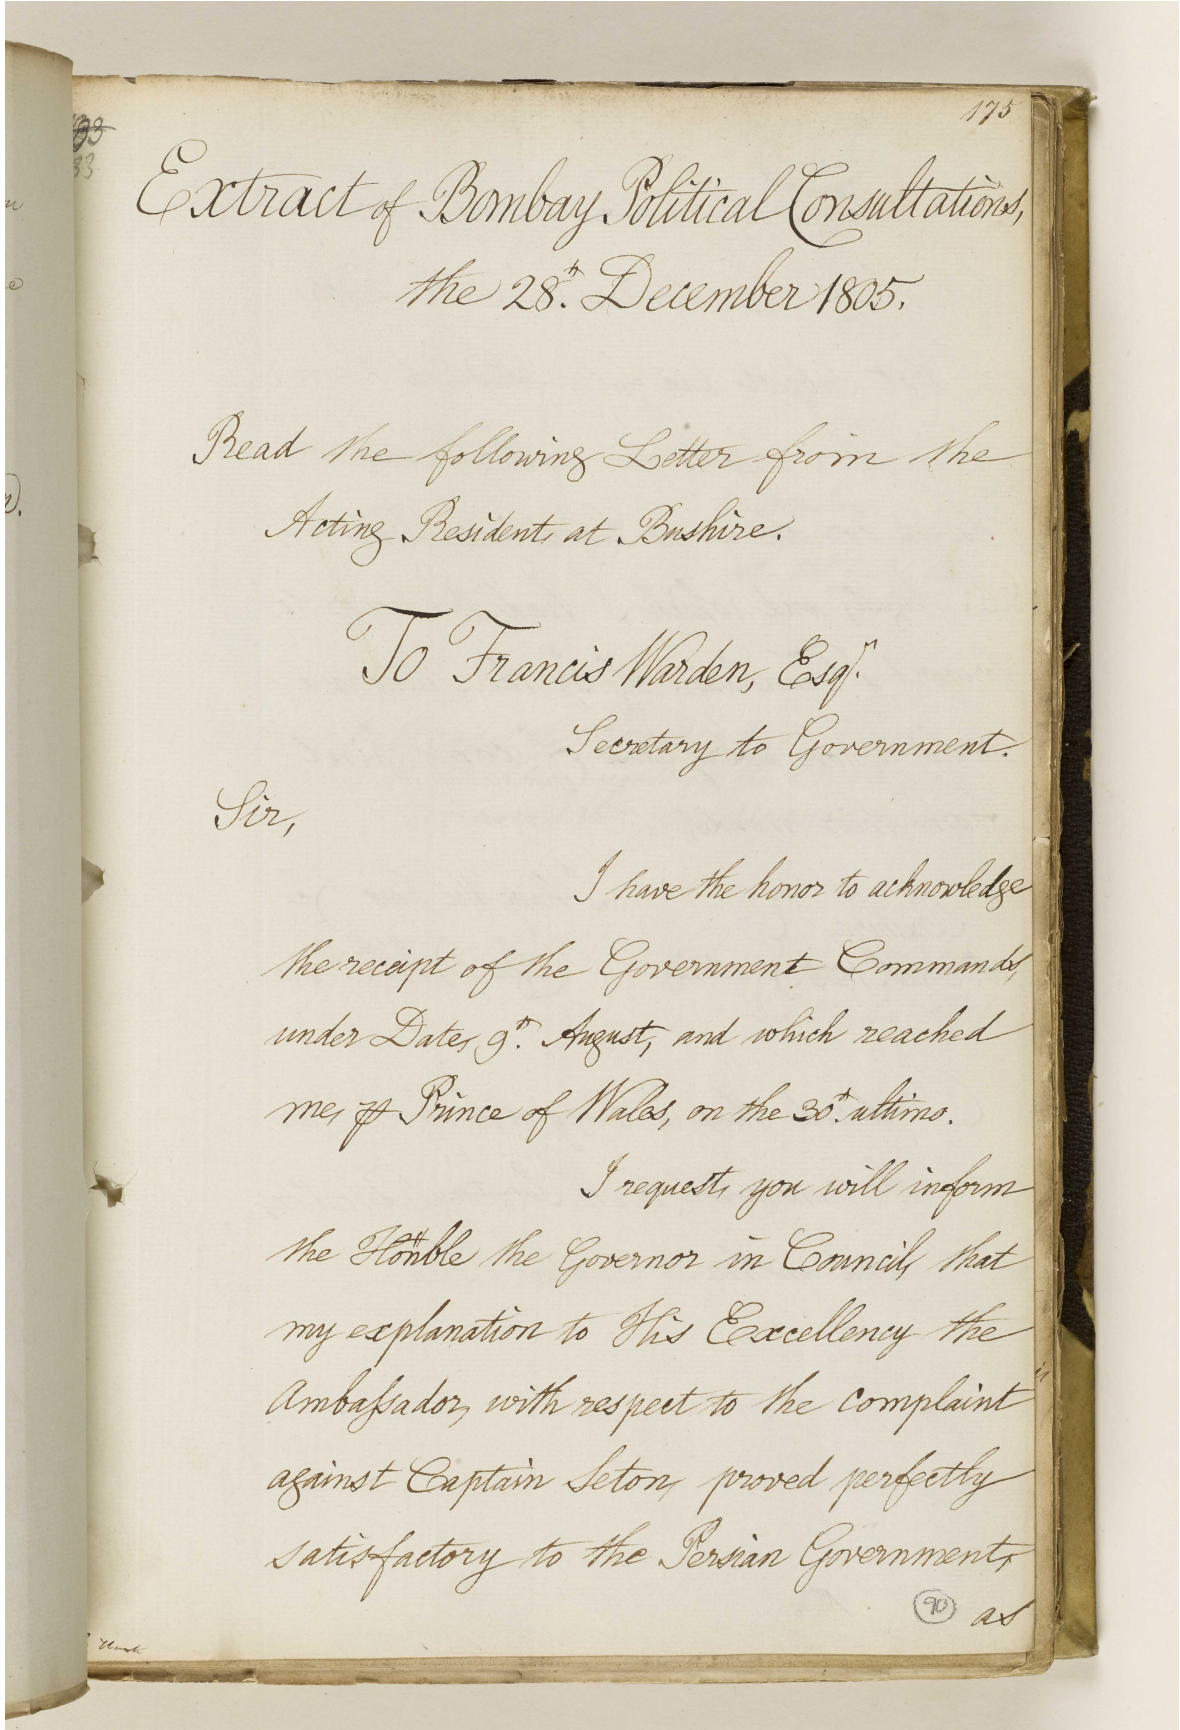 175
33
Extract of Bombay Political Consultations,
the 28th. December 1805.
Read the following Letter from the
Acting Resident, at Bushire.
To Francis Warden, Esqr.
Secretary to Government.
Sir,
I have the honor to acknowledge
the receipt of the Government Commands,
under Date, 9th. August, and which reached
me, ⅌ Prince of Wales, on the 30th. ultimo.
I request, you will inform
the Honble the Governor in Council, that
my explanation to His Excellency the
Ambaſsador, with respect to the complaint
against Captain Seton, proved perfectly
satisfactory to the Persian Government,
90
as